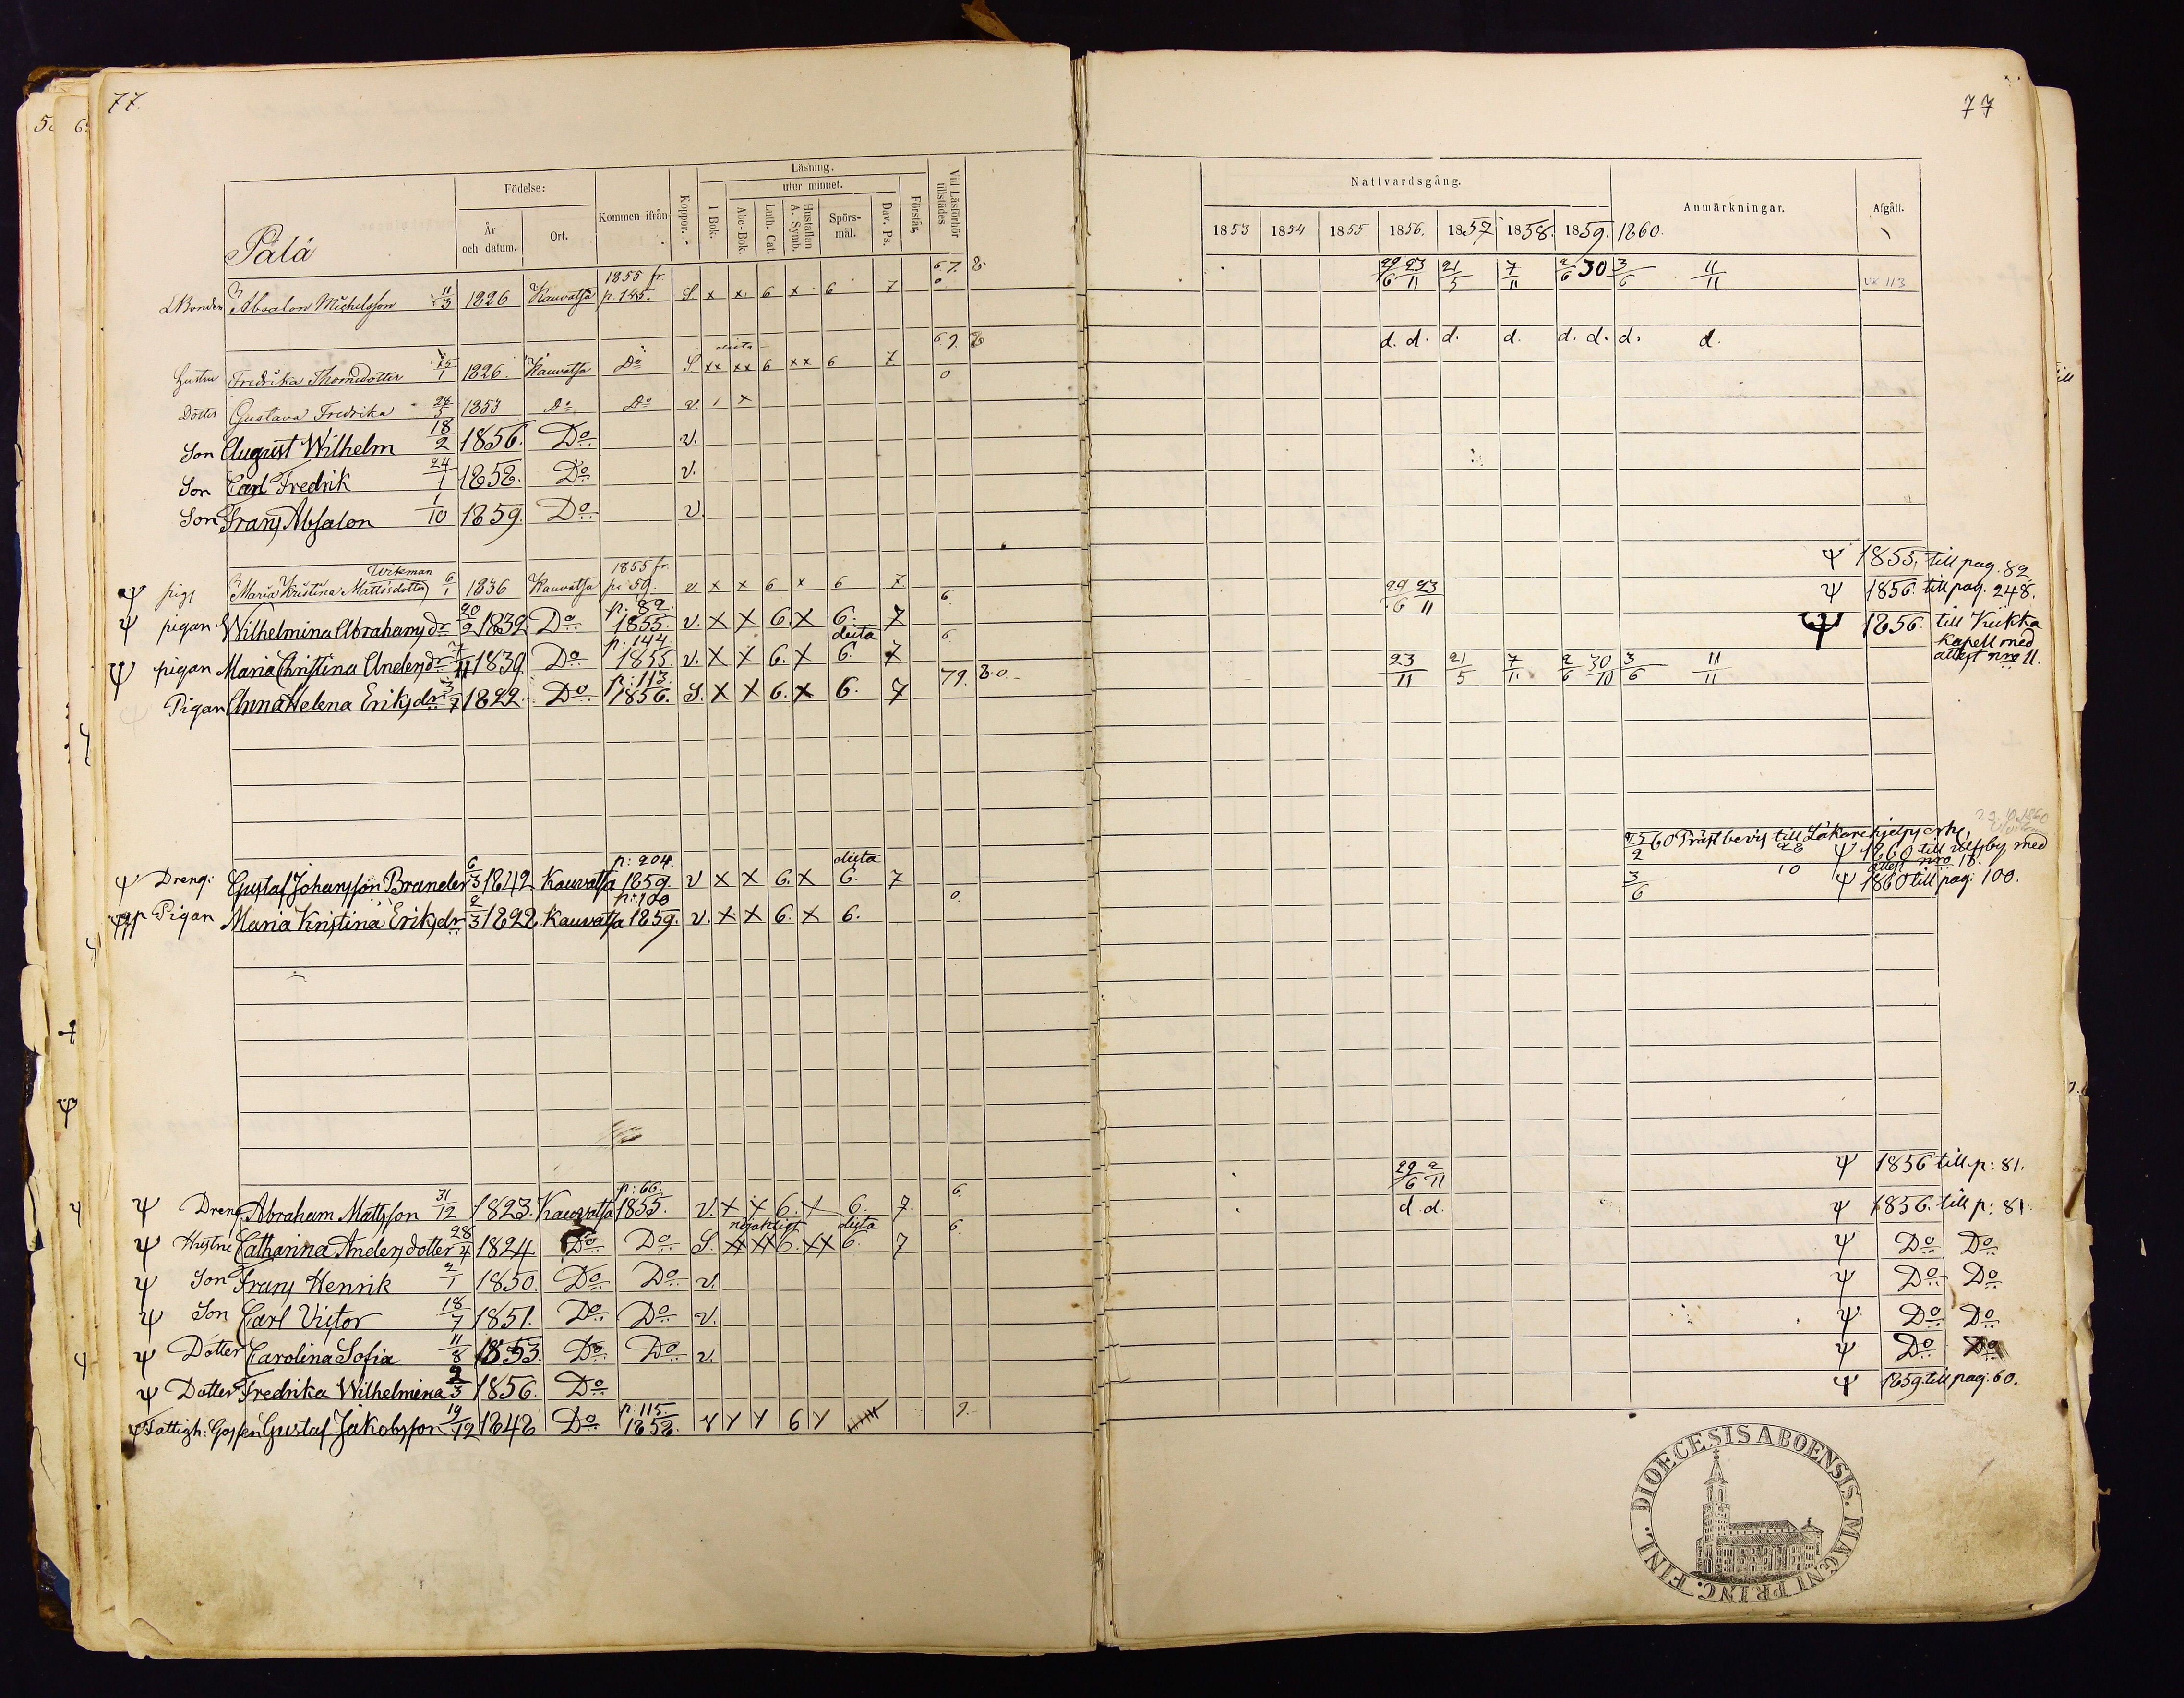 77.
77
Pälä
Födelse:
År och datum.
Ort.
Kommen ifrån
Koppor.
Läsning,
utur minnet.
I Bok.
Abc-Bok.
Luth. Cat.
Hustaflan A. Symb.
Spörs-mål.
Dav. Ps.
Förstår.
Vid Läsförhör tillstädes
Nattvardsgång.
1853 1854 1855 1856. 1857 1858. 1859. 1860.
Anmärkningar.
Afgått.
Bonden Absalon Michelsson 11/3 1826 Kauvatsa 1855 fr. p. 145. S x x 6 x 6 7 29/6 23/11 21/5 7/11 2/6 30 3/6 11/11
Hustru Fredrika Thomsdotter 15/1 1826. Kauvatsa Do S xx xx 6 xx 6 7 d. d. d. d. d. d. d. d.
Dotter Gustava Fredrika 28/5 1853 Do Do v. 1 x
Son August Wilhelm 18/2 1856. Do v.
Son Carl Fredrik 24/1 1858. Do v.
Son Frans Absalon 1/10 1859. Do v.
Ψ pig Maria Kristina Mattsdotter Wikman 6/1 1836 Kauvatsa 1855 fr. p: 59 v x x 6 x 6 7 Ψ 1855. till pag. 82
Ψ pigan Wilhelmina Abrahamsdr 20/2 1839 Do p: 82. 1855. v. x x 6. x 6. 7 6. 29/6 23/11 Ψ 1856. till pag. 248.
Ψ pigan Maria Christina Andersdr 7/11 1839. Do p: 144 1855 v. x x 6. x 6. 7 6. Ψ 1856. till Kiikka kapell med attest nro 11.
Pigan Anna Helena Eriksdr 3/7 1822. Do p: 113. 1856. S. x x 6. x 6. 7 79. 8.0. 23/11 21/5 7/11 2/6 30/10 3/6 11/11
Ψ Dreng: Gustaf Johansson Brander 6/3 1842 Kauvatsa p: 204. 1859. v x x 6. x 6. 7 Prästbevis till Läkare Ψ 1860 till med attest nro 18.
Pigan Maria Kristina Eriksdr 2/3 1822 Kauvatsa p: 100 1859. v. x x 6. x 6. 0. 3/6 Ψ 1860 till pag: 100.
Ψ Dreng Abraham Mattsson 31/12 1823. Kauvatsa p: 66. 1855. v. x x 6. x 6. 7. 6. Ψ 1856 till p: 81.
Ψ Hustru Catharina Andersdotter 28/4 1824 Do Do S. xx xx 6. xx 6. 7 6. d. d. Ψ 1856. till p: 81.
Ψ Son Frans Henrik 2/1 1850. Do Do v. Ψ Do Do
Ψ Son Carl Victor 18/7 1851. Do Do v. Ψ Do Do
Ψ Dotter Carolina Sofia 11/8 1853. Do Do v. Ψ Do Do
Ψ Dotter Fredrika Wilhelmina 2/3 1856. Do Ψ Do Do
Ψ Fattigh: Gossen Gustaf Jakobsson 19/12 1848 Do p: 115. 1858. Ψ 1859. till pag. 60.
DIOECESIS ABOENSIS. MAGNI PRINC. FINL.